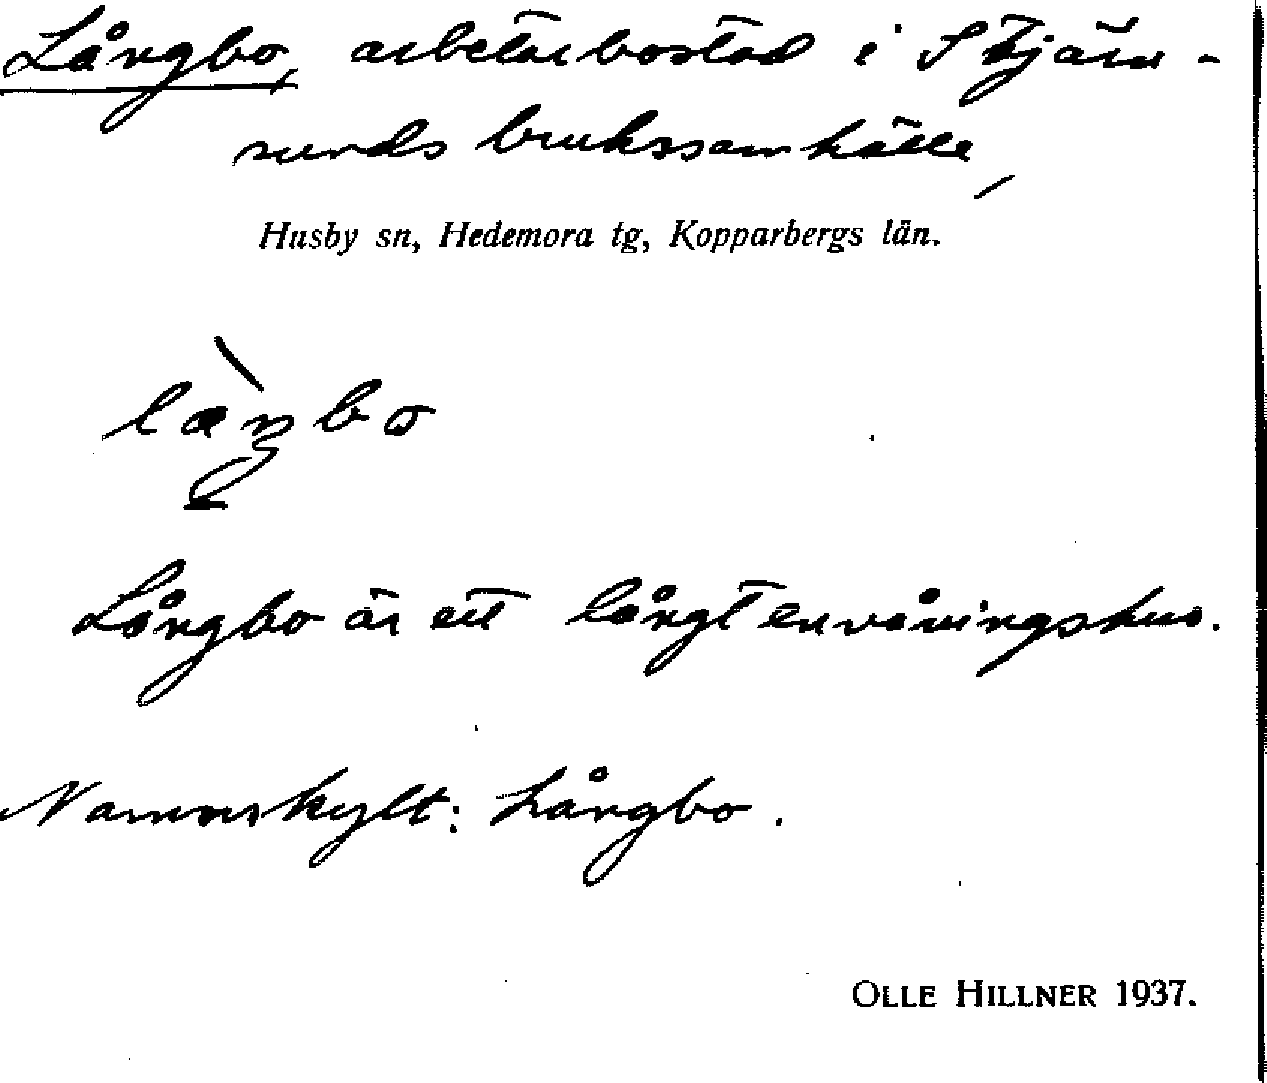 Långbo, arbetarbostad i Stjärn-
sunds brukssamhälle,
Husby sn, Hedemora tg, Kopparbergs län.
Långbo är ett långt envåningshus.
Namnskylt: Långbo.
OLLE HILLNER 1937.